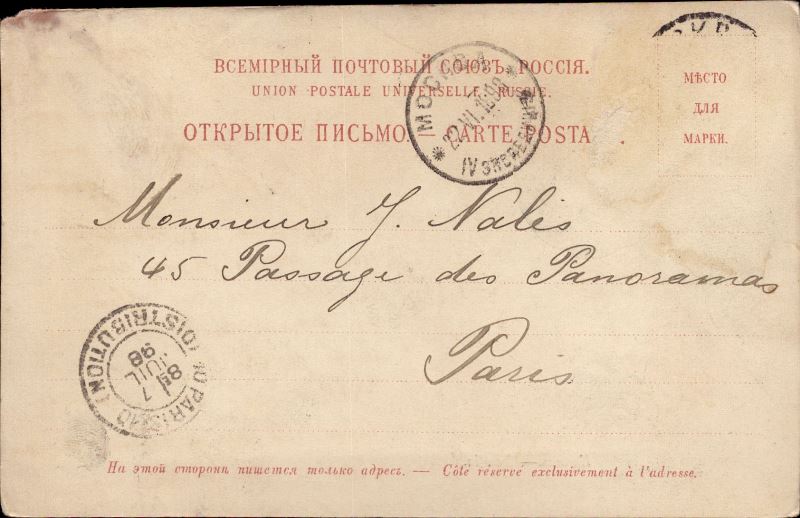 ВСЕМІРНЫЙ ПОЧТОВЫЙ СОЮЗЪ. РОССІЯ.
UNION POSTALE UNIVERSELLE. RUSSIE.
ОТКРЫТОЕ ПИСЬМО. — CARTE POSTA
МѢСТО
ДЛЯ
МАРКИ.
МОСКВА
22.VI.1898
IV ЭКСПЕД
Monsieur J. Nalès
45 Passage des Panoramas
Paris
PARIS
(DISTRIBUTION)
8E
7
JUIL
98
На этой сторонѣ пишется только адресъ. — Côté réservé exclusivement à l'adresse.